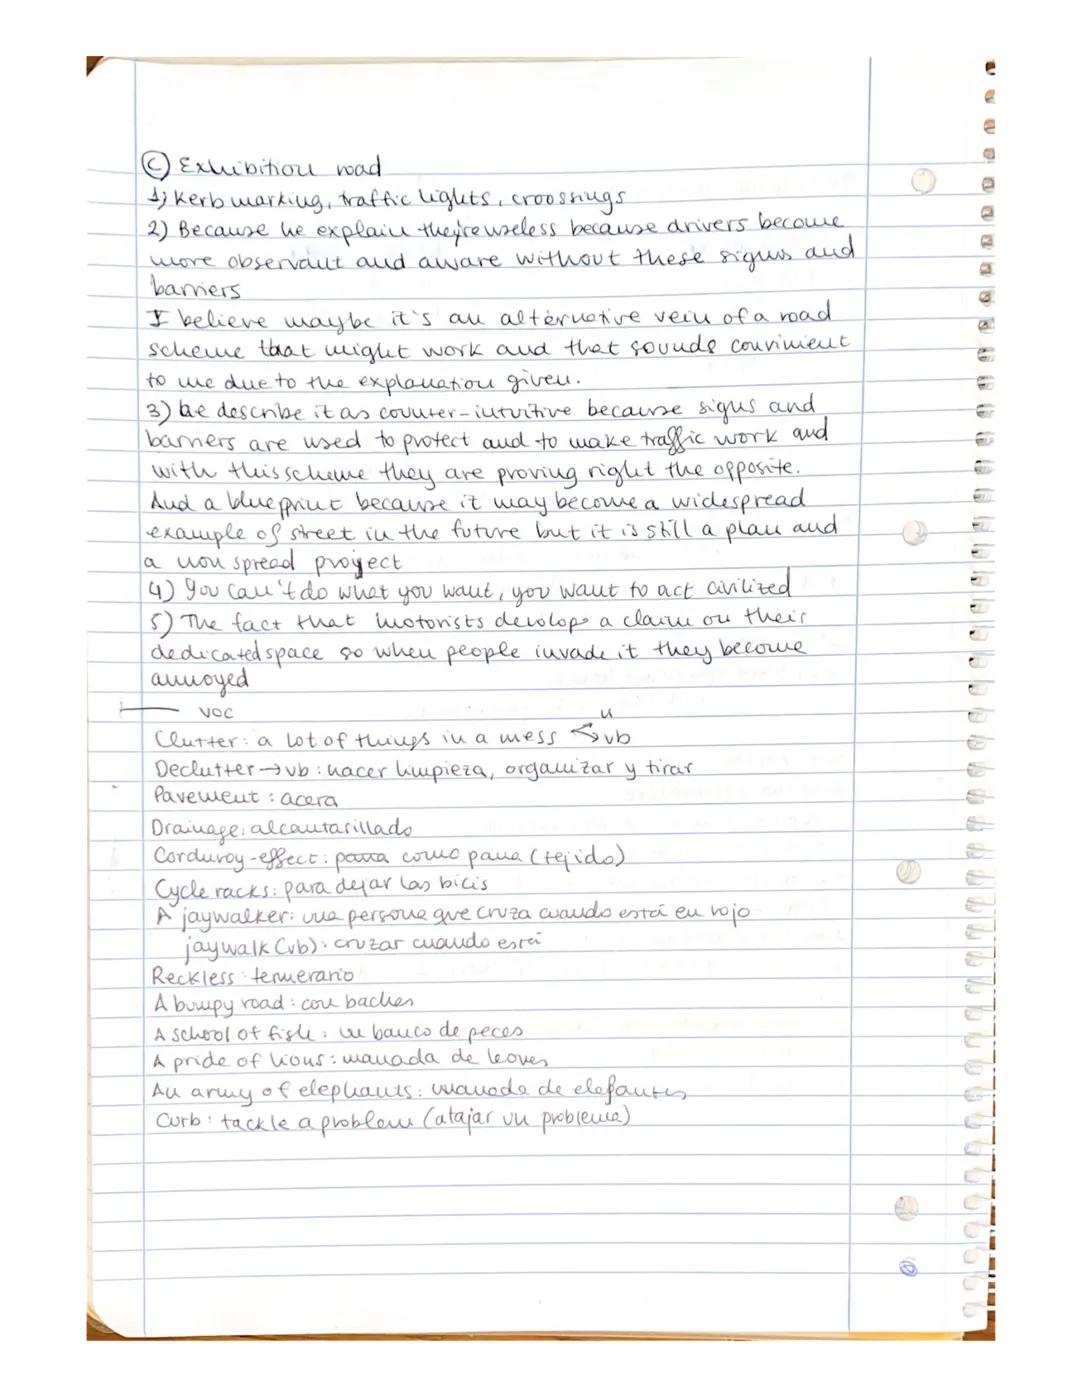 C) Exhibition road
1) Kerb marking, traffic lights, croossings
2) Because he explain they're useless because drivers become
more observant and aware without these signs and
barriers
I believe maybe it's an alternative vein of a road
scheme that might work and that sounds convinient
to me due to the explanation given.
3) he describe it as counter-intuitive because signs and
barriers are used to protect and to make traffic work and
with this scheme they are proving right the opposite.
And a blueprint because it may become a widespread
example of street in the future but it is still a plan and
a non spread project
4) You can't do what you want, you want to act civilized
5) The fact that motorists develops a claim on their
dedicated space so when people invade it they become
annoyed
voc
n
Clutter: a lot of things in a mess vb
Declutter → vb: hacer limpieza, organizar y tirar
Pavement: acera
Drainage: alcantarillado
Corduroy-effect: pana como pana (tejido)
Cycle racks: para dejar las bicis
A jaywalker: una persona que cruza cuando está en rojo
jaywalk (vb): cruzar cuando está
Reckless: temerario
A bumpy road: con baches
A school of fish: un banco de peces
A pride of lions: manada de leones
An army of elephants: manada de elefantes
Curb: tackle a problem (atajar un problema)